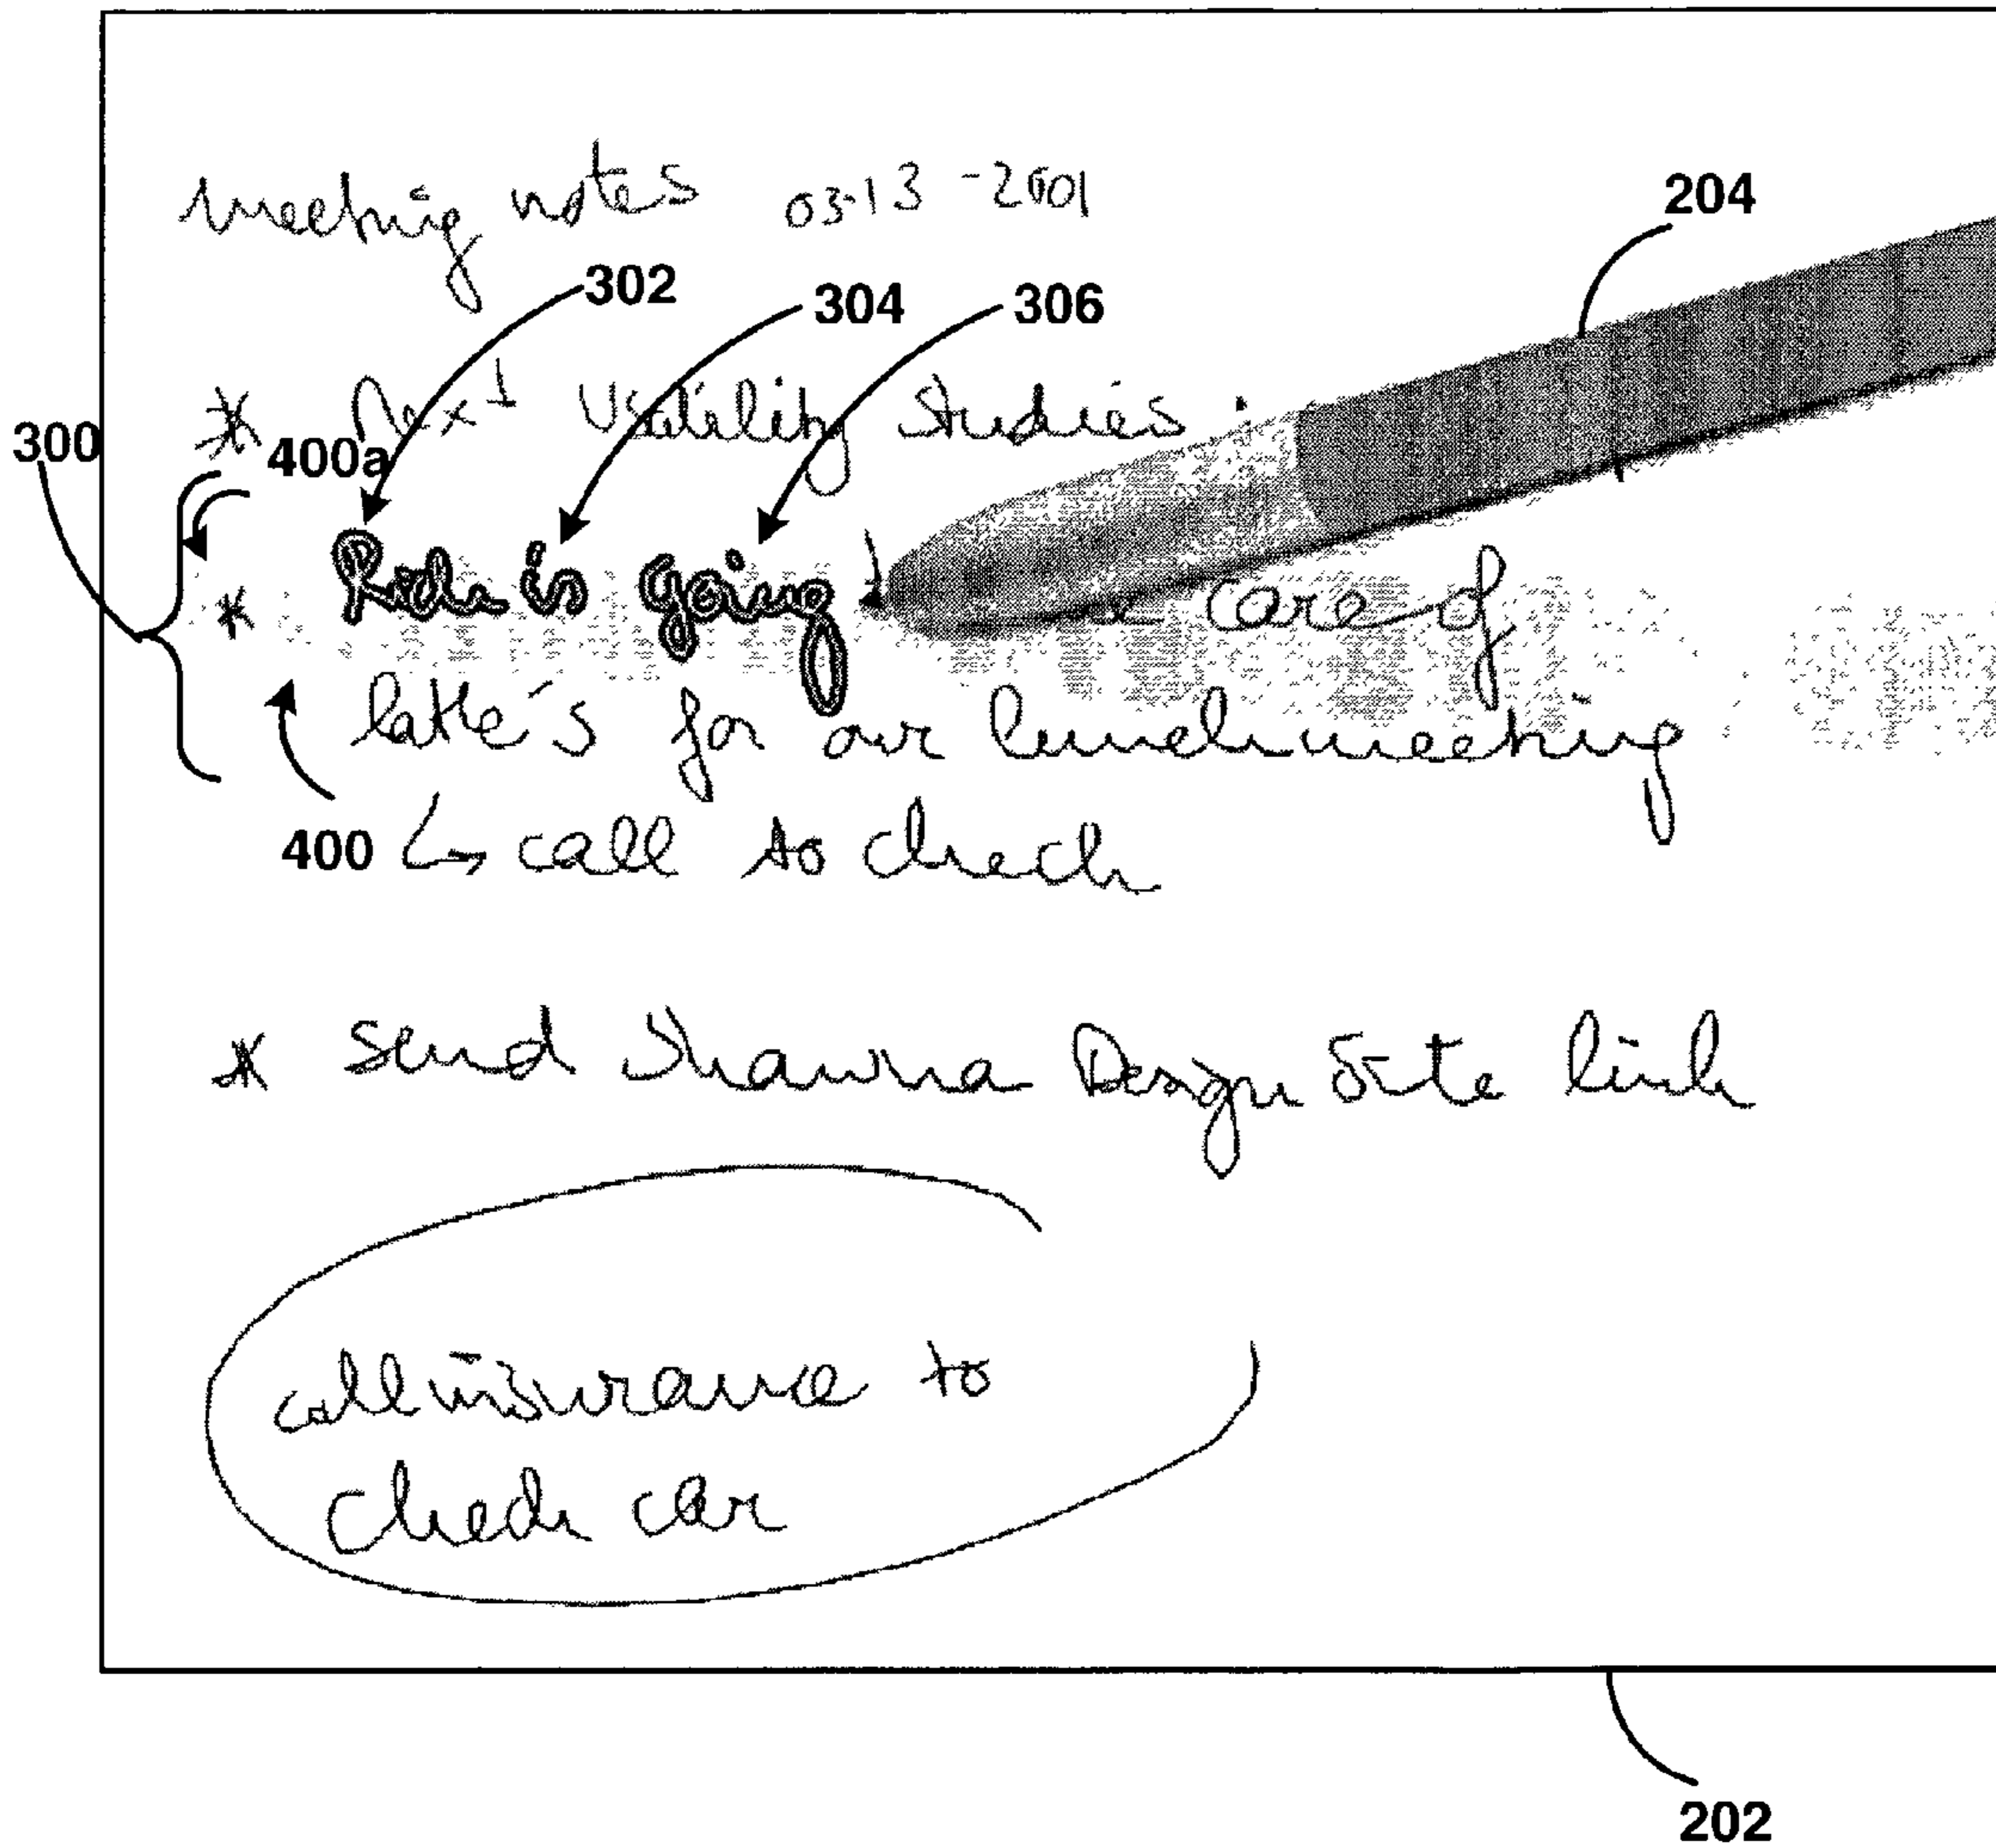 meeting notes 03-13-2001
204
302
304
306
* Next Usability Studies :
300
400a
* Rich is going care of
latte's for our lunch meeting
400
↳ call to check
* Send Shawna Design Site link
call insurance to
check car
202